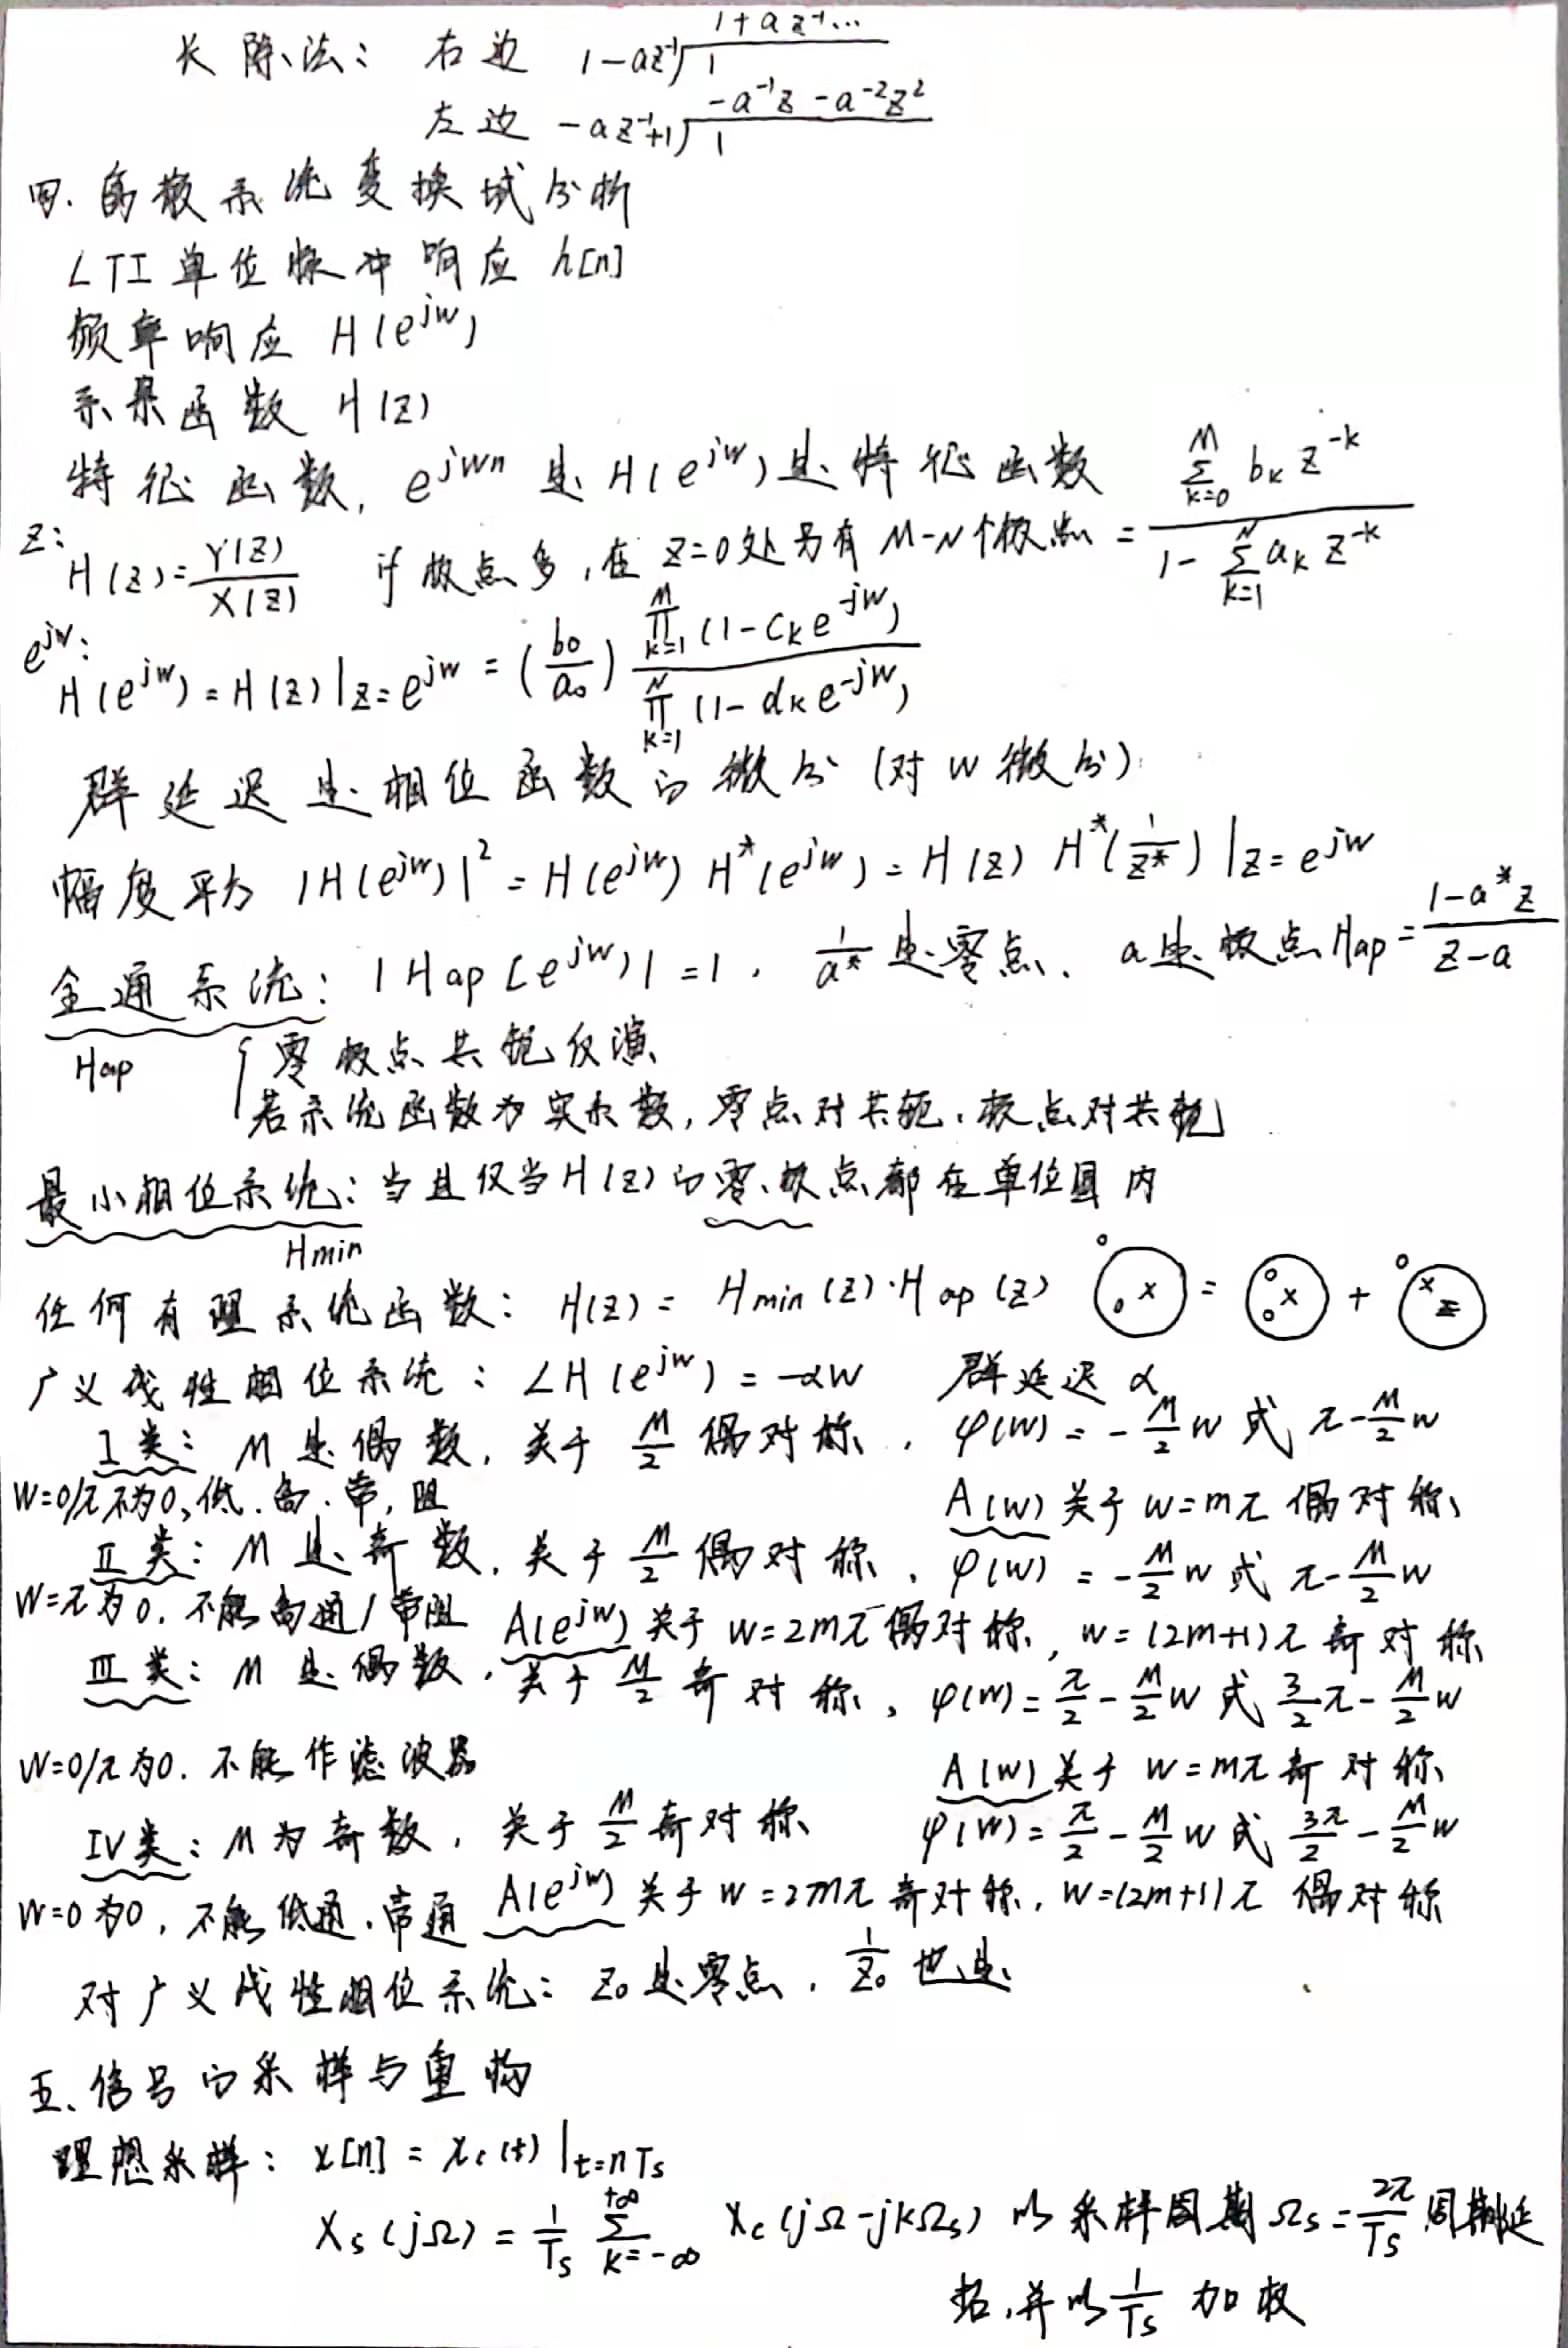 长除法: 右边 1-az⁻¹)1 1+az⁻¹...
左边 -az⁻¹+1)1 -a⁻¹z-a⁻²z²
四.离散系统变换域分析
LTI单位脉冲响应 h[n]
频率响应 H(e^{jw})
系统函数 H(z)
特征函数, e^{jwn} 是 H(e^{jw}) 是特征函数
z: H(z)=Y(z)/X(z) if 极点多,在 z=0处另有 M-N个极点 = \frac{\sum_{k=0}^{M} b_k z^{-k}}{1-\sum_{k=1}^{N} a_k z^{-k}}
e^{jw}: H(e^{jw})=H(z)|z=e^{jw} = (\frac{b_0}{a_0}) \frac{\prod_{k=1}^{M}(1-c_k e^{-jw})}{\prod_{k=1}^{N}(1-d_k e^{-jw})}
群延迟是相位函数的微分(对w微分)
幅度平方 |H(e^{jw})|² = H(e^{jw}) H*(e^{jw}) = H(z) H*(1/z*) |z=e^{jw}
全通系统: |Hap(e^{jw})|=1, 1/a* 是零点、a是极点 Hap = \frac{1-a^*z}{z-a}
Hap { 零极点共轭反演
若系统函数为实系数,零点对共轭.极点对共轭
最小相位系统:当且仅当H(z)的零、极点都在单位圆内
Hmin
任何有理系统函数: H(z) = Hmin(z)·Hap(z) = +
广义线性相位系统: ∠H(e^{jw}) = -αw 群延迟 α
I类: M是偶数, 关于 M/2 偶对称, φ(w) = -M/2 w 或 π-M/2 w
w=0/π不为0,低.高.带,阻 A(w)关于 w=mπ 偶对称
II类: M是奇数, 关于 M/2 偶对称, φ(w) = -M/2 w 或 π-M/2 w
w=π为0.不能高通/带阻 A(e^{jw})关于 w=2mπ偶对称, w=(2m+1)π奇对称
III类: M是偶数, 关于 M/2 奇对称, φ(w)=π/2-M/2 w 或 3/2π-M/2 w
w=0/π为0.不能作滤波器 A(w)关于 w=mπ奇对称
IV类: M为奇数, 关于 M/2 奇对称 φ(w)=π/2-M/2 w 或 3π/2-M/2 w
w=0为0,不能低通.带通 A(e^{jw})关于 w=2mπ奇对称, w=(2m+1)π 偶对称
对广义线性相位系统: z₀是零点, 1/z₀ 也是
五、信号的采样与重构
理想采样: x[n] = xc(t)|t=nTs
Xs(jΩ) = \frac{1}{Ts} \sum_{k=-∞}^{+∞} Xc(jΩ-jkΩs) 以采样周期Ωs=\frac{2π}{Ts}周期延
拓,并以\frac{1}{Ts} 加权